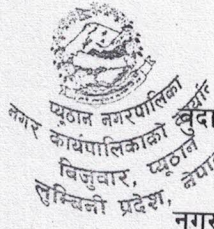 प्यूठान नगरपालिका
नगर कार्यपालिकाको
विजुवार, प्यूठान
लुम्बिनी प्रदेश, नेपा
नगर